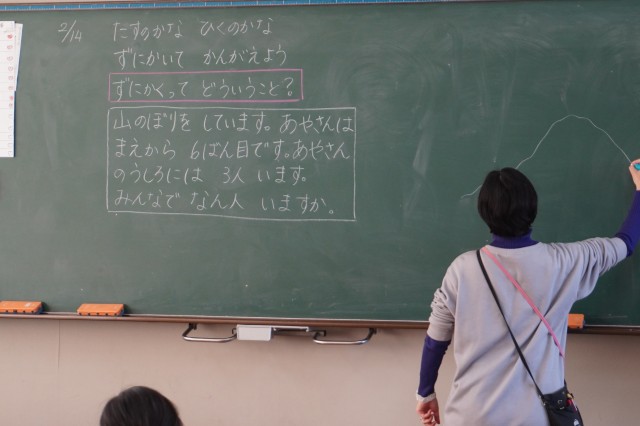 2/14
たすのかな ひくのかな
ずにかいて かんがえよう
ずにかくって どういうこと?
山のぼりを しています。あやさんは
まえから 6ばん目です。あやさん
のうしろには 3人 います。
みんなで なん人 いますか。